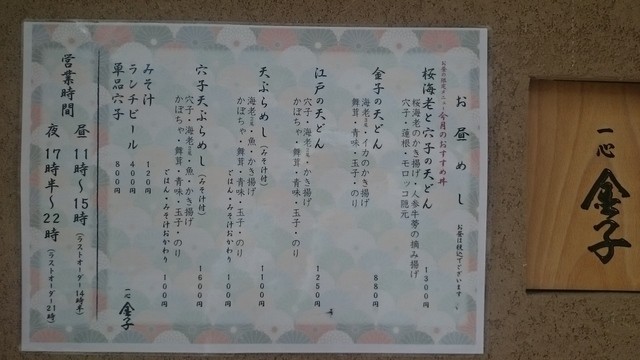 お昼めし
お昼は税込でございます
お昼の限定メニュー今月のおすすめ丼
桜海老と穴子の天どん
桜海老のかき揚げ・人参牛蒡の摘み揚げ
穴子・蓮根・モロッコ隠元
1300円
金子の天どん
海老・イカのかき揚げ
舞茸・青味・玉子・のり
880円
江戸の天どん
穴子・海老・かき揚げ
かぼちゃ・舞茸・青味・玉子・のり
1250円
天ぷらめし(みそ汁付)
海老・魚・かき揚げ
かぼちゃ・舞茸・青味・玉子・のり
1100円
ごはん・みそ汁おかわり 100円
穴子天ぷらめし(みそ汁付)
穴子・海老・魚・かき揚げ
かぼちゃ・舞茸・青味・玉子・のり
1600円
ごはん・みそ汁おかわり 100円
みそ汁 120円
ランチビール 400円
単品穴子 800円
一心 金子
営業時間
昼 11時〜15時(ラストオーダー14時半)
夜 17時半〜22時(ラストオーダー21時)
一心 金子